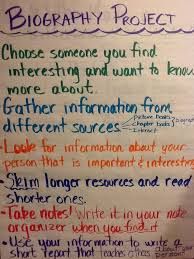 BIOGRAPHY PROJECT
Choose someone you find
interesting and want to know
more about...
Gather information from
different sources
Picture Books
Chapter books
Internet
• Look for information about your
person that is important & interesting
• Skim longer resources and read
shorter ones.
• Take notes! Write it in your note
organizer when you find it
• Use your information to write a
short report that teaches others
about your
person!